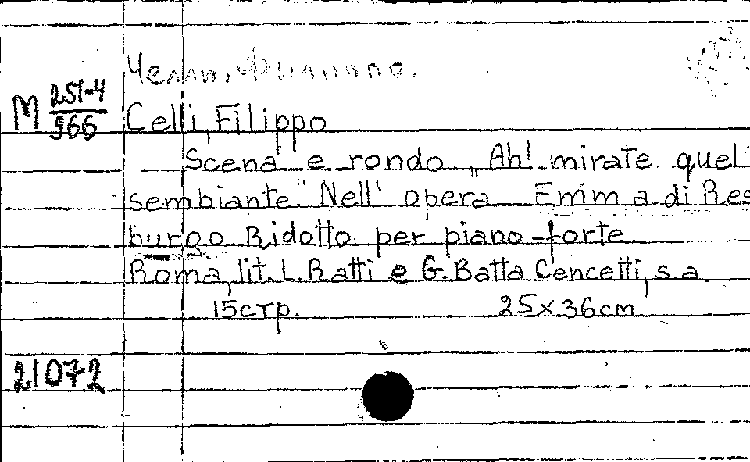 Челли, Филиппо.
M 251-4/366
Celli, Filippo
Scena e rondo „Ah! mirate quel
sembiante" Nell' opera Emma di Res
burgo Ridotto per piano-forte
Roma, lit. L. Ratti e G. Batta Cencetti, s.a.
15стр. 25x36cm
21072